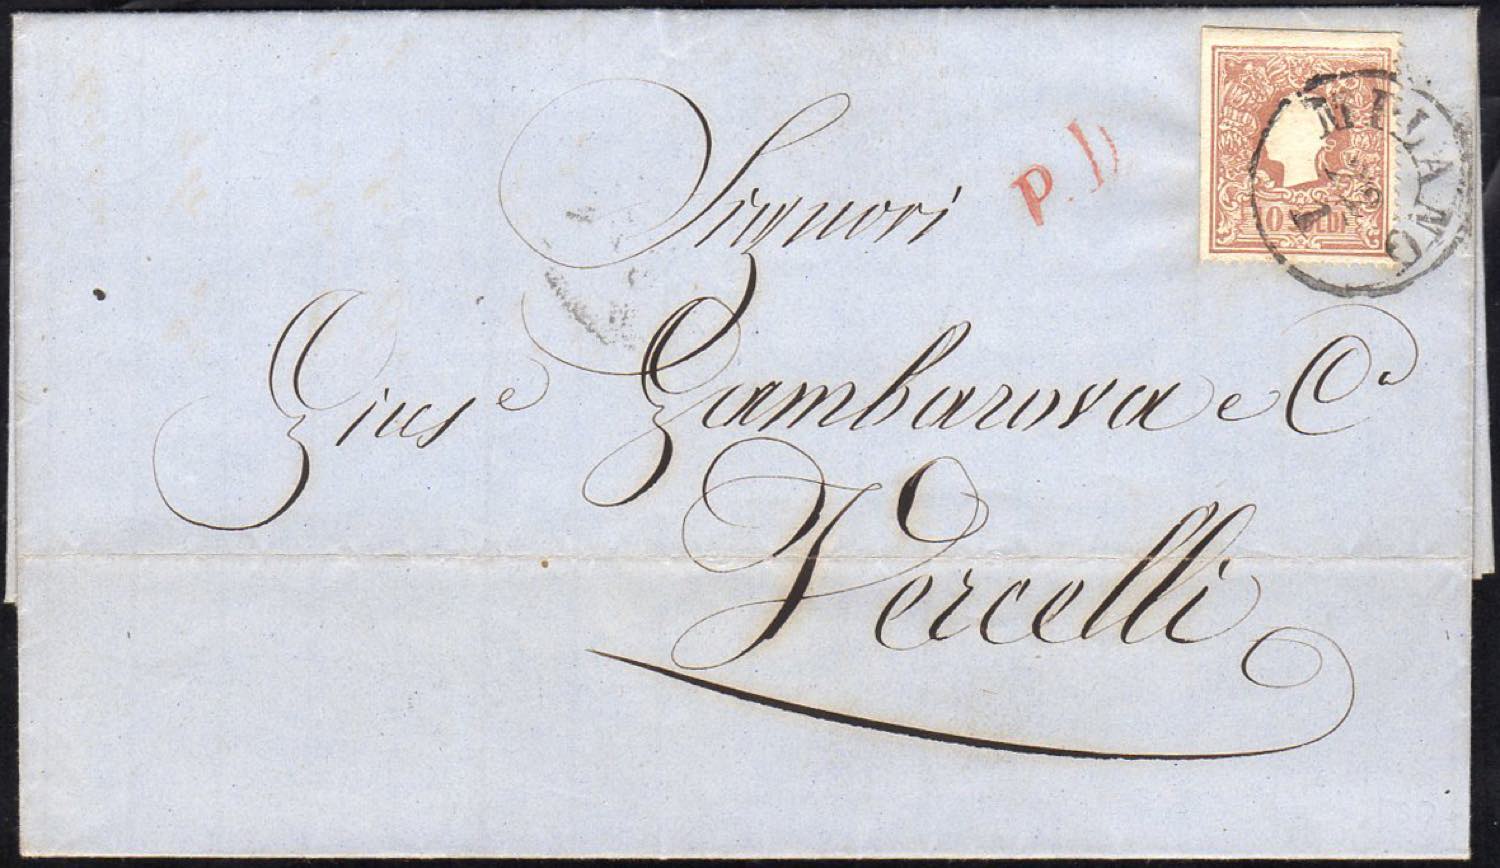 P.D
MILANO
10 SOLDI
Signori
Gius.e Gambarova e C.a
Vercelli